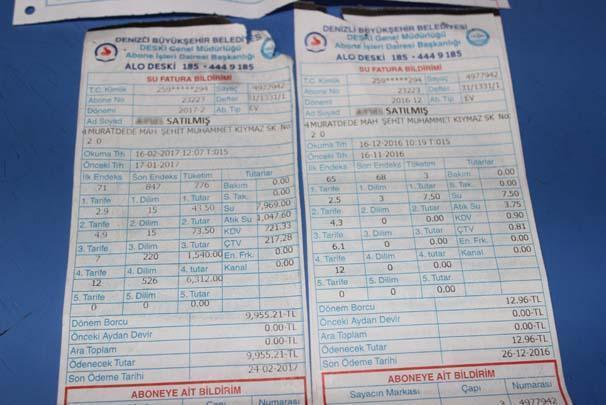 DENİZLİ BÜYÜKŞEHİR BELEDİYESİ
DESKİ Genel Müdürlüğü
Abone İşleri Dairesi Başkanlığı
ALO DESKİ 185 - 444 9 185
SU FATURA BİLDİRİMİ
T.C. Kimlik 259*****294 Sayaç 4977942
Abone No 23223 Defter 31/1331/1
Dönemi 2017-2 Ab. Tip EV
Ad Soyad SATILMIŞ
MURATDEDE MAH ŞEHİT MUHAMMET KIYMAZ SK No:
2 0
Okuma Trh 16-02-2017 12:07 T:015
Önceki Trh 17-01-2017
İlk Endeks Son Endeks Tüketim Tutarlar
71 847 776 Bakım 0.00
1. Tarife 1. Dilim 1. Tutar S. Tak. 0.00
2.9 15 43.50 Su 7,969.00
2. Tarife 2. Dilim 2. Tutar Atık Su 1,047.60
4.9 15 73.50 KDV 721.33
3. Tarife 3. Dilim 3. Tutar ÇTV 217.28
7 220 1,540.00 En. Frk. 0.00
4. Tarife 4. Dilim 4. tutar Kanal 0.00
12 526 6,312.00
5. Tarife 5. Dilim 5. Tutar
0 0 0.00
Dönem Borcu 9,955.21-TL
Önceki Aydan Devir 0.00-TL
Ara Toplam 0.00-TL
Ödenecek Tutar 9,955.21-TL
Son Ödeme Tarihi 24-02-2017
ABONEYE AİT BİLDİRİM
Sayacın Markası Çapı Numarası
DENİZLİ BÜYÜKŞEHİR BELEDİYESİ
DESKİ Genel Müdürlüğü
Abone İşleri Dairesi Başkanlığı
ALO DESKİ 185 - 444 9 185
SU FATURA BİLDİRİMİ
T.C. Kimlik 259*****294 Sayaç 4977942
Abone No 23223 Defter 31/1331/1
Dönemi 2016-12 Ab. Tip EV
Ad Soyad SATILMIŞ
MURATDEDE MAH ŞEHİT MUHAMMET KIYMAZ SK No:
2 0
Okuma Trh 16-12-2016 10:19 T:015
Önceki Trh 16-11-2016
İlk Endeks Son Endeks Tüketim Tutarlar
65 68 3 Bakım 0.00
1. Tarife 1. Dilim 1. Tutar S. Tak. 0.00
2.5 3 7.50 Su 7.50
2. Tarife 2. Dilim 2. Tutar Atık Su 3.75
4.3 0 0.00 KDV 0.90
3. Tarife 3. Dilim 3. Tutar ÇTV 0.81
6.1 0 0.00 En. Frk. 0.00
4. Tarife 4. Dilim 4. tutar Kanal 0.00
12 0 0.00
5. Tarife 5. Dilim 5. Tutar
0 0 0.00
Dönem Borcu 12.96-TL
Önceki Aydan Devir 0.00-TL
Ara Toplam 0.00-TL
Ödenecek Tutar 12.96-TL
Son Ödeme Tarihi 26-12-2016
ABONEYE AİT BİLDİRİM
Sayacın Markası Çapı Numarası
4977942